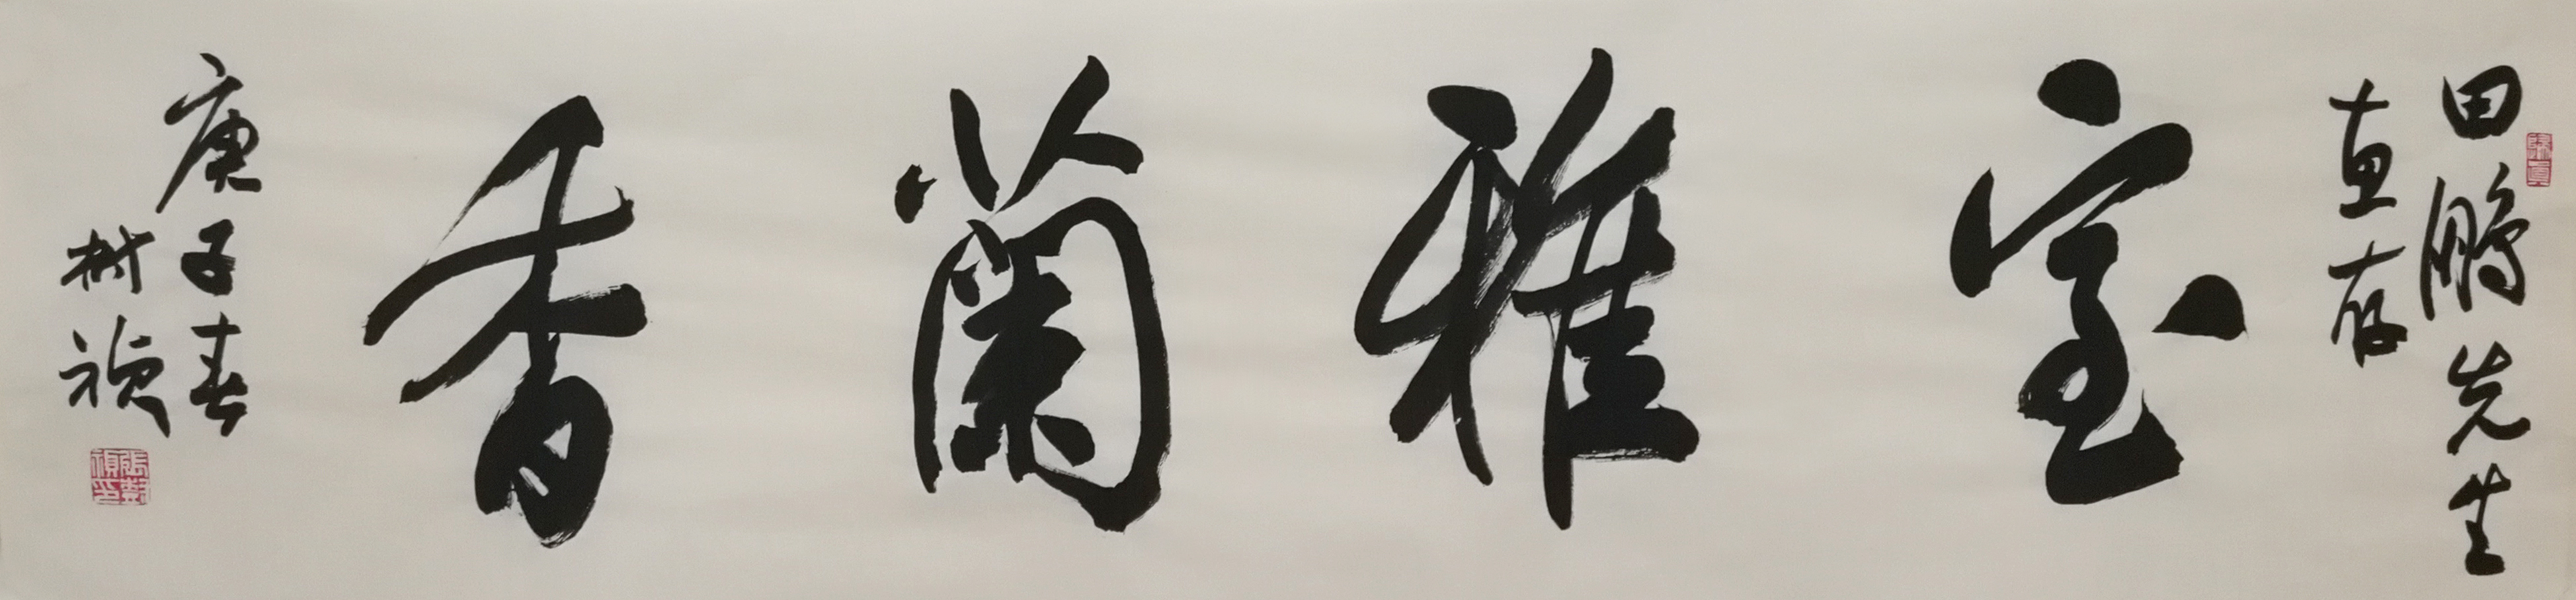 田鹏先生
惠存
室雅蘭香
庚子春
树祯